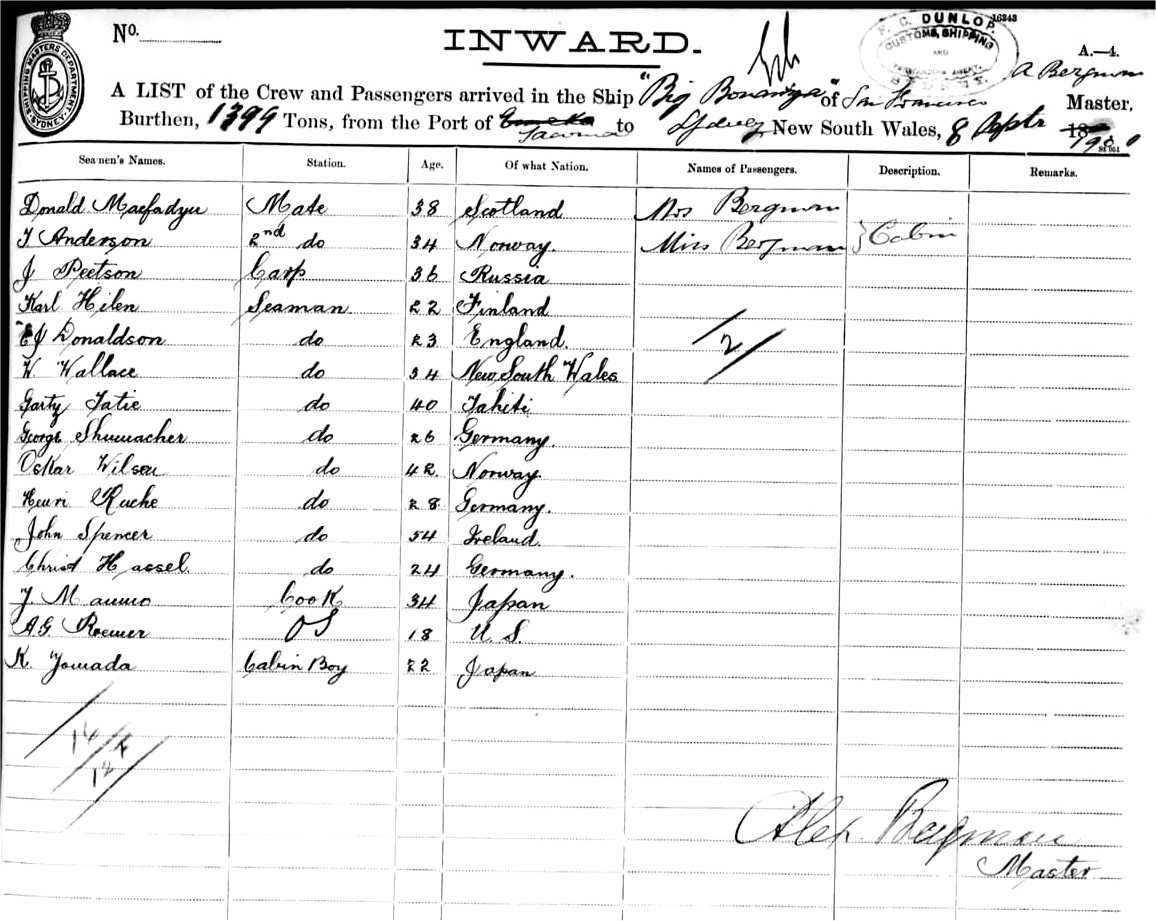 No.
INWARD.
F. C. DUNLOP,
CUSTOMS, SHIPPING
AND
SYDNEY.
16243
A.—4.
SHIPPING MASTERS DEPARTMENT
SYDNEY
A Bergman
A LIST of the Crew and Passengers arrived in the Ship "Big Bonanza" of San Francisco Master,
Burthen, 1399 Tons, from the Port of Eureka Tacoma to Sydney New South Wales, 8 Septr 18 1900
St 661
Seamen's Names. Station. Age. Of what Nation. Names of Passengers. Description. Remarks.
Donald Macfadyn Mate 38 Scotland Mrs Bergman
T Anderson 2nd do 34 Norway. Miss Bergman } Cabin
J Peetson Carp 36 Russia
Karl Hilen Seaman 22 Finland
EJ Donaldson do 23 England. 2
W Wallace do 34 New South Wales
Garty Tatie do 40 Tahiti
George Shumacher do 26 Germany.
Oskar Wilsen do 42 Norway.
Henri Ruche do 28 Germany.
John Spencer do 54 Ireland.
Christ Hassel do 24 Germany.
J. Maumo Cook 34 Japan
A.G. Roemer OS 18 U. S.
K. Yomada Cabin Boy 22 Japan
Alex. Bergman
Master